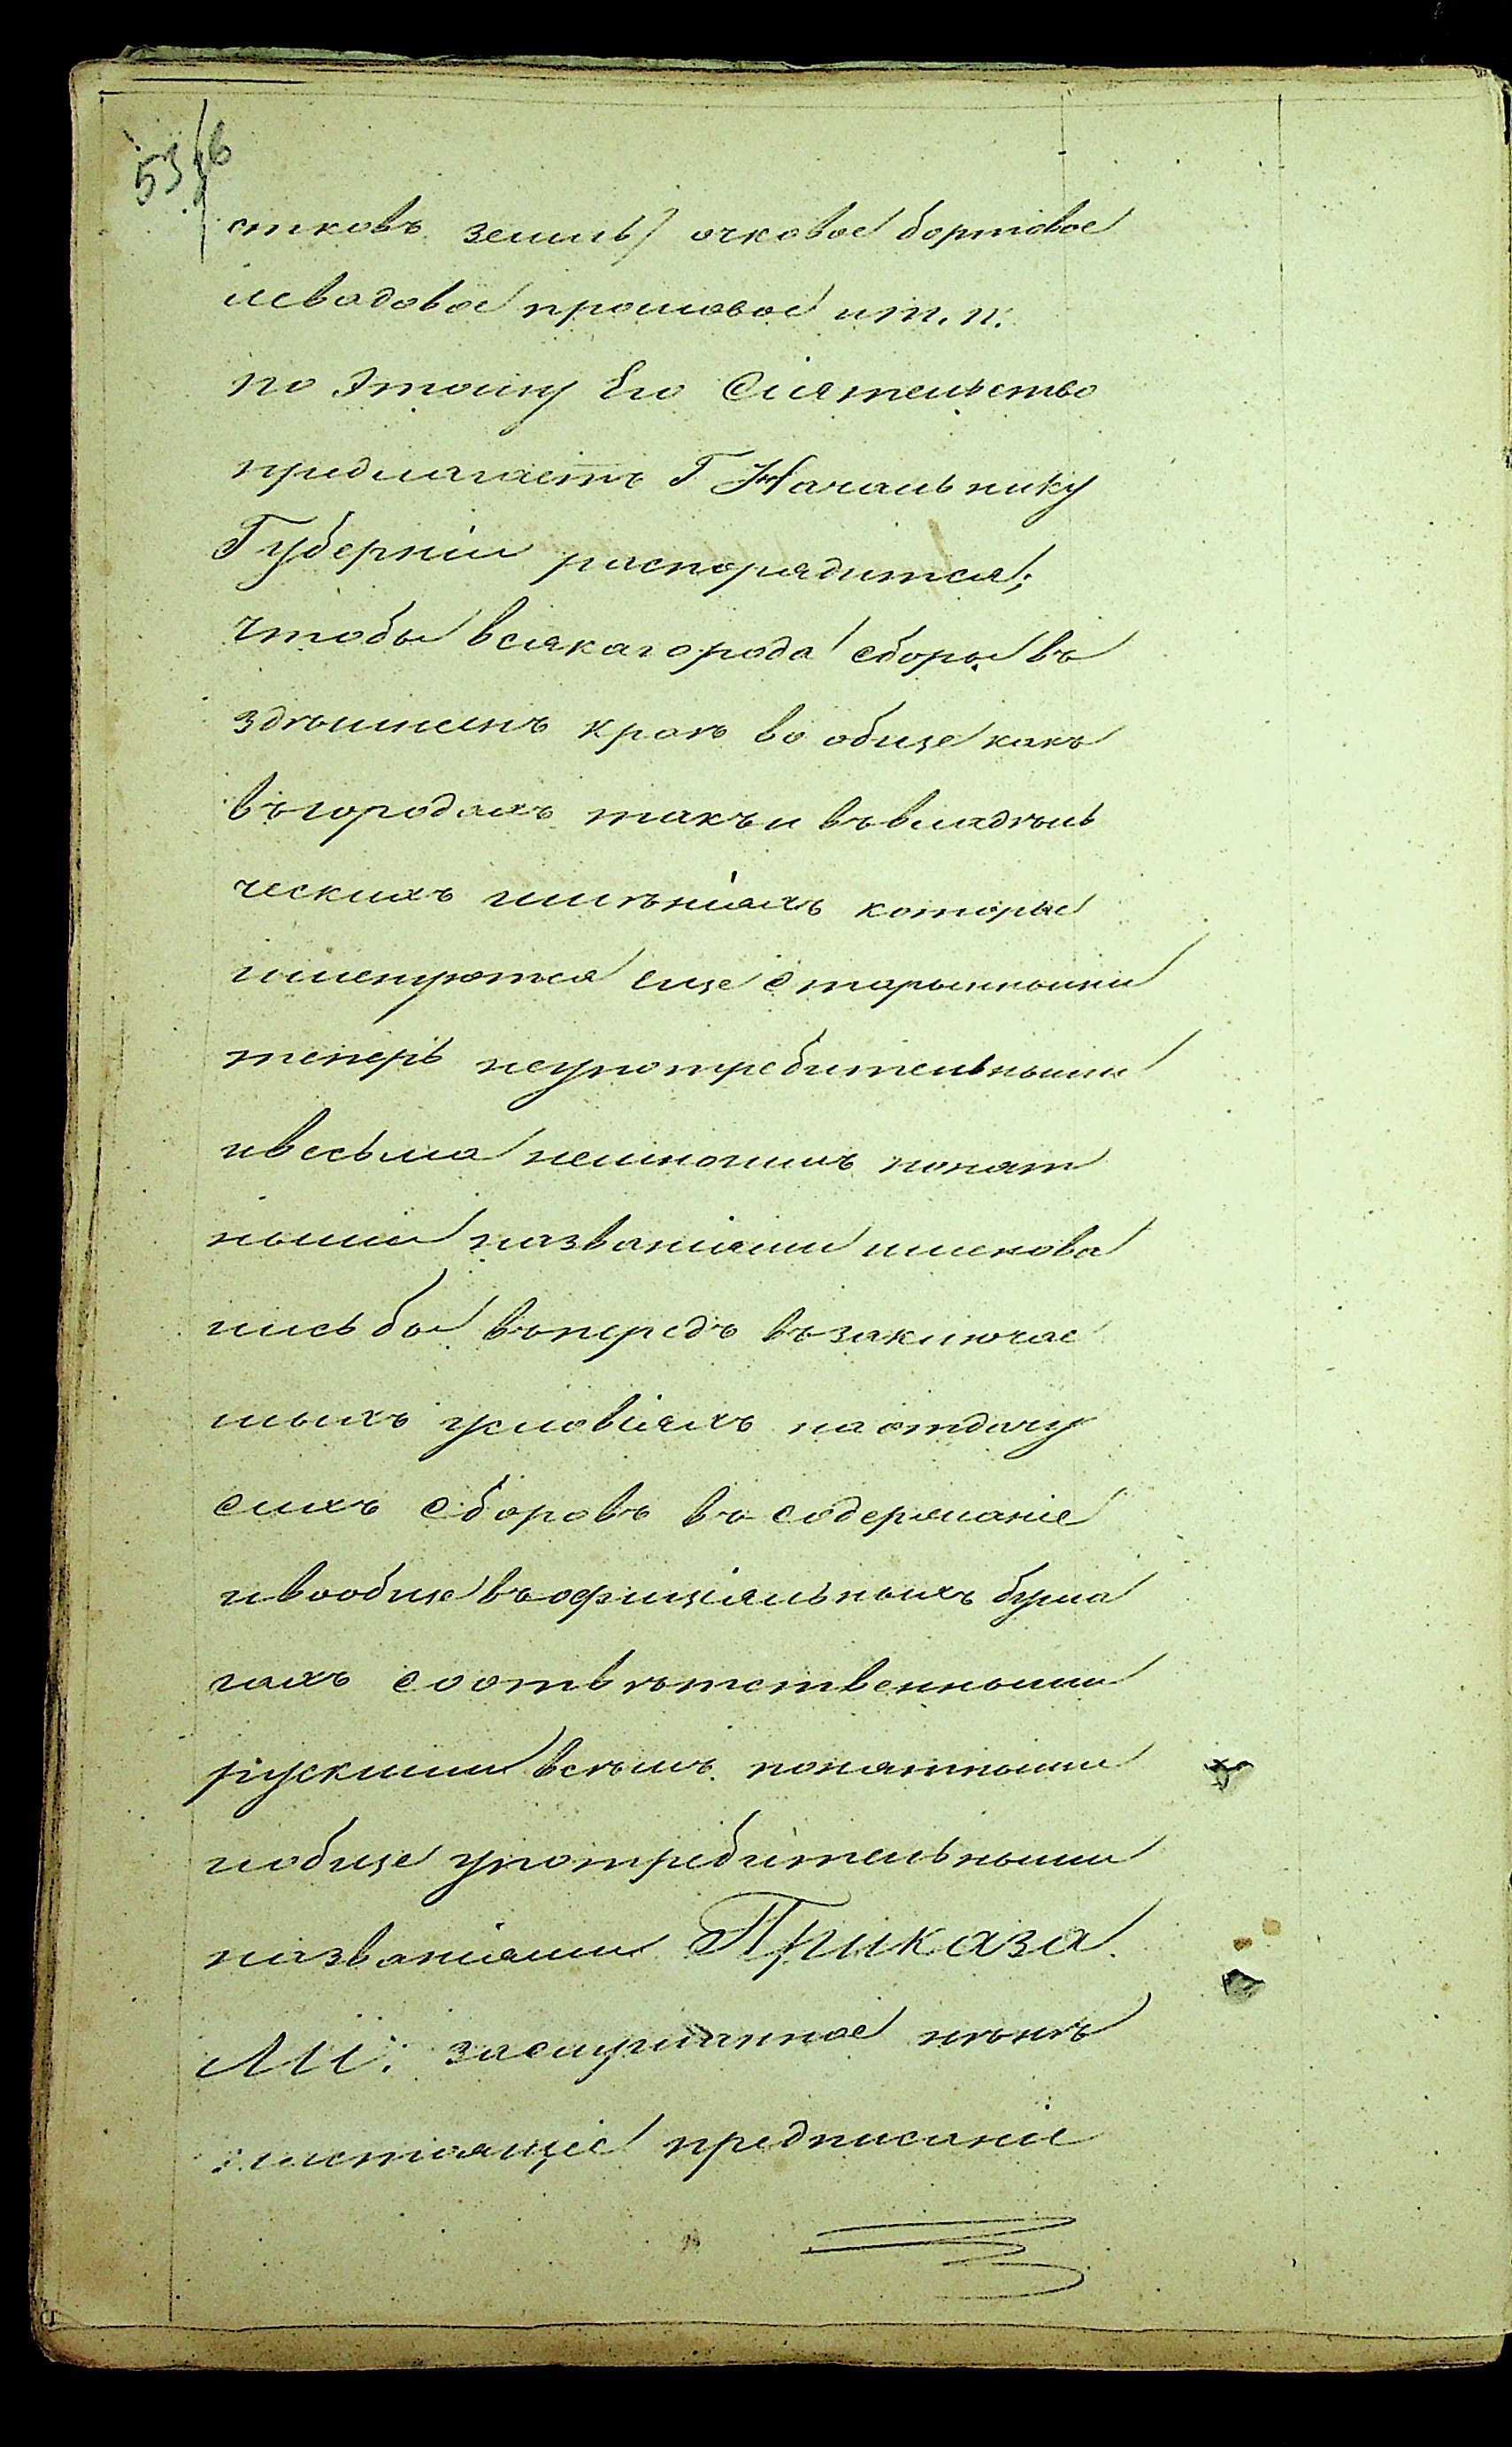 53/6
стковъ земли) очковое бортовое
левадовое промовое ит.п.
по Этому Его Сіятельство
предлагаетъ Г Начальнику
Губерніи распорядится;
чтобы всякагорода сборы въ
здѣшнемъ краѣ во обще какъ
въгородахъ такъи въвладѣль
ческихъ имѣніяхъ которые
именуются еще старынными
теперь неупотребительными
ивесьма немногимъ понят
ными названіями именова
лись бы въпередъ възаключае
мыхъ условіяхъ наотдачу
сихъ сборовъ въ содержаніе
ивообще въофиціяльныхъ бума
гахъ соотвѣтственными
рускими всѣмъ понятными
иобще употребительными
названіями Приказа
ЛИ: заслушанное
настоящіе предписаніе